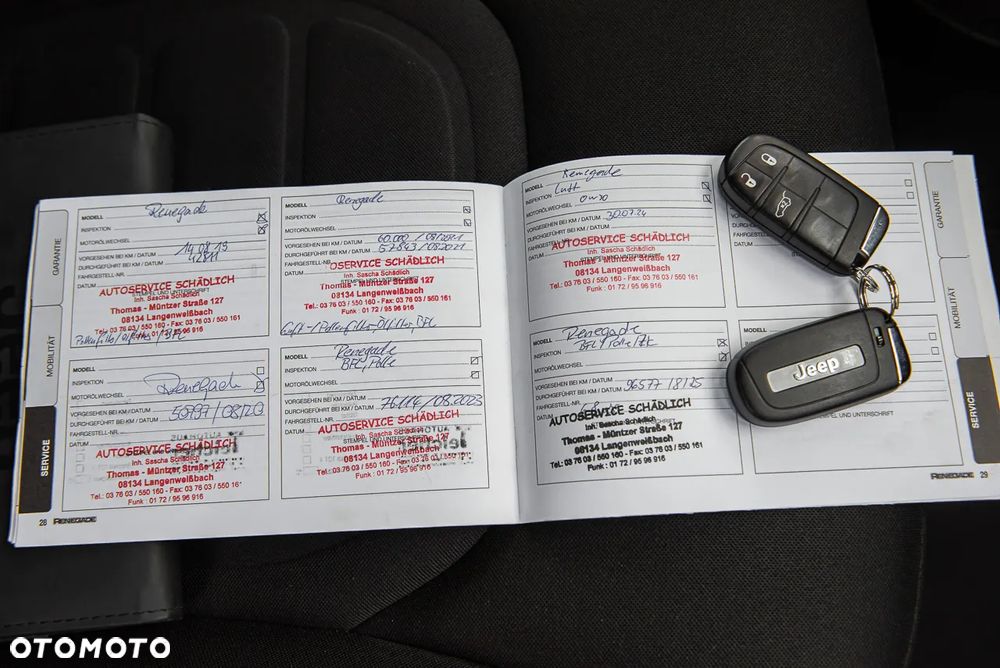 GARANTIE
MOBILITÄT
SERVICE
MODELL Renegade
INSPEKTION
MOTORÖLWECHSEL
VORGESEHEN BEI KM / DATUM 14.08.19
DURCHGEFÜHRT BEI KM / DATUM
FAHRGESTELL-NR.
DATUM STEMPEL UND UNTERSCHRIFT
AUTOSERVICE SCHÄDLICH
Inh. Sascha Schädlich
Thomas - Müntzer Straße 127
08134 Langenweißbach
Tel.: 03 76 03 / 550 160 - Fax: 03 76 03 / 550 161
Funk : 01 72 / 95 96 916
MODELL Renegade
INSPEKTION
MOTORÖLWECHSEL
VORGESEHEN BEI KM / DATUM 60.000 / 08/2021
DURCHGEFÜHRT BEI KM / DATUM 57.843 / 08.2021
FAHRGESTELL-NR.
DATUM
AUTOSERVICE SCHÄDLICH
Inh. Sascha Schädlich
Thomas - Müntzer Straße 127
08134 Langenweißbach
Tel.: 03 76 03 / 550 160 - Fax: 03 76 03 / 550 161
Funk : 01 72 / 95 96 916
MODELL
INSPEKTION Renegade
MOTORÖLWECHSEL
VORGESEHEN BEI KM / DATUM
DURCHGEFÜHRT BEI KM / DATUM
FAHRGESTELL-NR.
DATUM
AUTOSERVICE SCHÄDLICH
Inh. Sascha Schädlich
Thomas - Müntzer Straße 127
08134 Langenweißbach
Tel.: 03 76 03 / 550 160 - Fax: 03 76 03 / 550 161
Funk : 01 72 / 95 96 916
MODELL Renegade
INSPEKTION BFL, Polle
MOTORÖLWECHSEL
VORGESEHEN BEI KM / DATUM
DURCHGEFÜHRT BEI KM / DATUM 76114 / 08.2023
FAHRGESTELL-NR.
DATUM
AUTOSERVICE SCHÄDLICH
Inh. Sascha Schädlich
Thomas - Müntzer Straße 127
08134 Langenweißbach
Tel.: 03 76 03 / 550 160 - Fax: 03 76 03 / 550 161
Funk : 01 72 / 95 96 916
28 RENEGADE
MODELL Renegade
INSPEKTION Luft
MOTORÖLWECHSEL
VORGESEHEN BEI KM / DATUM 30.07.24
DURCHGEFÜHRT BEI KM / DATUM
FAHRGESTELL-NR.
DATUM
AUTOSERVICE SCHÄDLICH
Inh. Sascha Schädlich
Thomas - Müntzer Straße 127
08134 Langenweißbach
Tel.: 03 76 03 / 550 160 - Fax: 03 76 03 / 550 161
Funk : 01 72 / 95 96 916
MODELL Renegade
INSPEKTION
MOTORÖLWECHSEL
VORGESEHEN BEI KM / DATUM
DURCHGEFÜHRT BEI KM / DATUM 96577 / 8/25
FAHRGESTELL-NR.
DATUM
AUTOSERVICE SCHÄDLICH
Inh. Sascha Schädlich
Thomas - Müntzer Straße 127
08134 Langenweißbach
Tel.: 03 76 03 / 550 160 - Fax: 03 76 03 / 550 161
Funk : 01 72 / 95 96 916
UND UNTERSCHRIFT
GARANTIE
MOBILITÄT
SERVICE
RENEGADE 29
Jeep
OTOMOTO